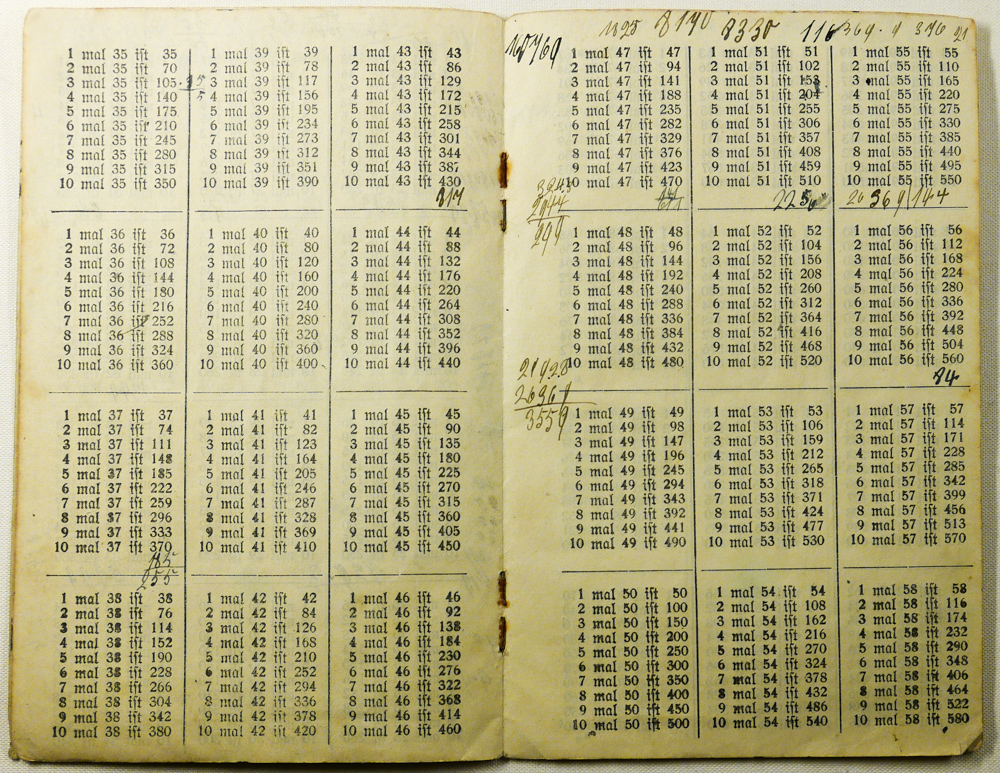 1 mal 35 iſt 35
2 mal 35 iſt 70
3 mal 35 iſt 105
4 mal 35 iſt 140
5 mal 35 iſt 175
6 mal 35 iſt 210
7 mal 35 iſt 245
8 mal 35 iſt 280
9 mal 35 iſt 315
10 mal 35 iſt 350
1 mal 39 iſt 39
2 mal 39 iſt 78
3 mal 39 iſt 117
4 mal 39 iſt 156
5 mal 39 iſt 195
6 mal 39 iſt 234
7 mal 39 iſt 273
8 mal 39 iſt 312
9 mal 39 iſt 351
10 mal 39 iſt 390
1 mal 43 iſt 43
2 mal 43 iſt 86
3 mal 43 iſt 129
4 mal 43 iſt 172
5 mal 43 iſt 215
6 mal 43 iſt 258
7 mal 43 iſt 301
8 mal 43 iſt 344
9 mal 43 iſt 387
10 mal 43 iſt 430
217
1 mal 36 iſt 36
2 mal 36 iſt 72
3 mal 36 iſt 108
4 mal 36 iſt 144
5 mal 36 iſt 180
6 mal 36 iſt 216
7 mal 36 iſt 252
8 mal 36 iſt 288
9 mal 36 iſt 324
10 mal 36 iſt 360
1 mal 40 iſt 40
2 mal 40 iſt 80
3 mal 40 iſt 120
4 mal 40 iſt 160
5 mal 40 iſt 200
6 mal 40 iſt 240
7 mal 40 iſt 280
8 mal 40 iſt 320
9 mal 40 iſt 360
10 mal 40 iſt 400
1 mal 44 iſt 44
2 mal 44 iſt 88
3 mal 44 iſt 132
4 mal 44 iſt 176
5 mal 44 iſt 220
6 mal 44 iſt 264
7 mal 44 iſt 308
8 mal 44 iſt 352
9 mal 44 iſt 396
10 mal 44 iſt 440
1 mal 37 iſt 37
2 mal 37 iſt 74
3 mal 37 iſt 111
4 mal 37 iſt 148
5 mal 37 iſt 185
6 mal 37 iſt 222
7 mal 37 iſt 259
8 mal 37 iſt 296
9 mal 37 iſt 333
10 mal 37 iſt 370
255
1 mal 41 iſt 41
2 mal 41 iſt 82
3 mal 41 iſt 123
4 mal 41 iſt 164
5 mal 41 iſt 205
6 mal 41 iſt 246
7 mal 41 iſt 287
8 mal 41 iſt 328
9 mal 41 iſt 369
10 mal 41 iſt 410
1 mal 45 iſt 45
2 mal 45 iſt 90
3 mal 45 iſt 135
4 mal 45 iſt 180
5 mal 45 iſt 225
6 mal 45 iſt 270
7 mal 45 iſt 315
8 mal 45 iſt 360
9 mal 45 iſt 405
10 mal 45 iſt 450
1 mal 38 iſt 38
2 mal 38 iſt 76
3 mal 38 iſt 114
4 mal 38 iſt 152
5 mal 38 iſt 190
6 mal 38 iſt 228
7 mal 38 iſt 266
8 mal 38 iſt 304
9 mal 38 iſt 342
10 mal 38 iſt 380
1 mal 42 iſt 42
2 mal 42 iſt 84
3 mal 42 iſt 126
4 mal 42 iſt 168
5 mal 42 iſt 210
6 mal 42 iſt 252
7 mal 42 iſt 294
8 mal 42 iſt 336
9 mal 42 iſt 378
10 mal 42 iſt 420
1 mal 46 iſt 46
2 mal 46 iſt 92
3 mal 46 iſt 138
4 mal 46 iſt 184
5 mal 46 iſt 230
6 mal 46 iſt 276
7 mal 46 iſt 322
8 mal 46 iſt 368
9 mal 46 iſt 414
10 mal 46 iſt 460
8190 8330 116 369 . 9 376 21
1 mal 47 iſt 47
2 mal 47 iſt 94
3 mal 47 iſt 141
4 mal 47 iſt 188
5 mal 47 iſt 235
6 mal 47 iſt 282
7 mal 47 iſt 329
8 mal 47 iſt 376
9 mal 47 iſt 423
10 mal 47 iſt 470
1 mal 51 iſt 51
2 mal 51 iſt 102
3 mal 51 iſt 153
4 mal 51 iſt 204
5 mal 51 iſt 255
6 mal 51 iſt 306
7 mal 51 iſt 357
8 mal 51 iſt 408
9 mal 51 iſt 459
10 mal 51 iſt 510
1 mal 55 iſt 55
2 mal 55 iſt 110
3 mal 55 iſt 165
4 mal 55 iſt 220
5 mal 55 iſt 275
6 mal 55 iſt 330
7 mal 55 iſt 385
8 mal 55 iſt 440
9 mal 55 iſt 495
10 mal 55 iſt 550
1 mal 48 iſt 48
2 mal 48 iſt 96
3 mal 48 iſt 144
4 mal 48 iſt 192
5 mal 48 iſt 240
6 mal 48 iſt 288
7 mal 48 iſt 336
8 mal 48 iſt 384
9 mal 48 iſt 432
10 mal 48 iſt 480
1 mal 52 iſt 52
2 mal 52 iſt 104
3 mal 52 iſt 156
4 mal 52 iſt 208
5 mal 52 iſt 260
6 mal 52 iſt 312
7 mal 52 iſt 364
8 mal 52 iſt 416
9 mal 52 iſt 468
10 mal 52 iſt 520
1 mal 56 iſt 56
2 mal 56 iſt 112
3 mal 56 iſt 168
4 mal 56 iſt 224
5 mal 56 iſt 280
6 mal 56 iſt 336
7 mal 56 iſt 392
8 mal 56 iſt 448
9 mal 56 iſt 504
10 mal 56 iſt 560
84
1 mal 49 iſt 49
2 mal 49 iſt 98
3 mal 49 iſt 147
4 mal 49 iſt 196
5 mal 49 iſt 245
6 mal 49 iſt 294
7 mal 49 iſt 343
8 mal 49 iſt 392
9 mal 49 iſt 441
10 mal 49 iſt 490
1 mal 53 iſt 53
2 mal 53 iſt 106
3 mal 53 iſt 159
4 mal 53 iſt 212
5 mal 53 iſt 265
6 mal 53 iſt 318
7 mal 53 iſt 371
8 mal 53 iſt 424
9 mal 53 iſt 477
10 mal 53 iſt 530
1 mal 57 iſt 57
2 mal 57 iſt 114
3 mal 57 iſt 171
4 mal 57 iſt 228
5 mal 57 iſt 285
6 mal 57 iſt 342
7 mal 57 iſt 399
8 mal 57 iſt 456
9 mal 57 iſt 513
10 mal 57 iſt 570
1 mal 50 iſt 50
2 mal 50 iſt 100
3 mal 50 iſt 150
4 mal 50 iſt 200
5 mal 50 iſt 250
6 mal 50 iſt 300
7 mal 50 iſt 350
8 mal 50 iſt 400
9 mal 50 iſt 450
10 mal 50 iſt 500
1 mal 54 iſt 54
2 mal 54 iſt 108
3 mal 54 iſt 162
4 mal 54 iſt 216
5 mal 54 iſt 270
6 mal 54 iſt 324
7 mal 54 iſt 378
8 mal 54 iſt 432
9 mal 54 iſt 486
10 mal 54 iſt 540
1 mal 58 iſt 58
2 mal 58 iſt 116
3 mal 58 iſt 174
4 mal 58 iſt 232
5 mal 58 iſt 290
6 mal 58 iſt 348
7 mal 58 iſt 406
8 mal 58 iſt 464
9 mal 58 iſt 522
10 mal 58 iſt 580